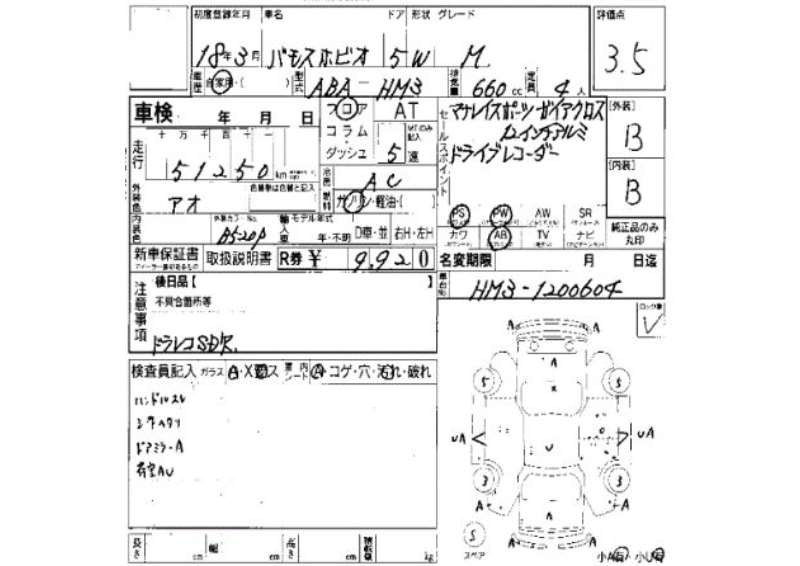 初度登録年月 車名 ドア 形状 グレード 評価点
18年3月 バモスホビオ 5W M 3.5
車歴 自家用・( ) 型式 ABA-HM3 排気量 660 cc 定員 4人
車検 年 月 日 フロア AT セールスポイント マナレイスポーツ・ガイアクロス [外装]
コラム MTのみ記入 12インチアルミ B
十万千百十一
ダッシュ 5速 ドライブレコーダー [内装]
走行 51250 km 冷房 AC B
外装色 アオ 色替車は色替と記入 燃料 ガソリン・軽油・( )
PS PW AW SR
内装色 外装カラーNo. 輸入車 モデル年式 カワ AB TV ナビ 純正品のみ丸印
B520P 年・不明 D車・並 右H・左H
新車保証書 取扱説明書 R券 ¥ 9,920 名変期限 月 日迄
注意事項 後日品【 】 車台No HM3-1200604
不具合箇所等
ドラレコSD欠
検査員記入 ガラス A・X・キス 車内シート A コゲ・穴・汚れ・破れ
ハンドルスレ
シートヘタリ
ドアミラーA
A A
A
5 5
UA U UA
3 3
A A
A
S
スペア
A A
小A有 小U有
長さ cm 幅 cm 高さ cm 積載量 kg